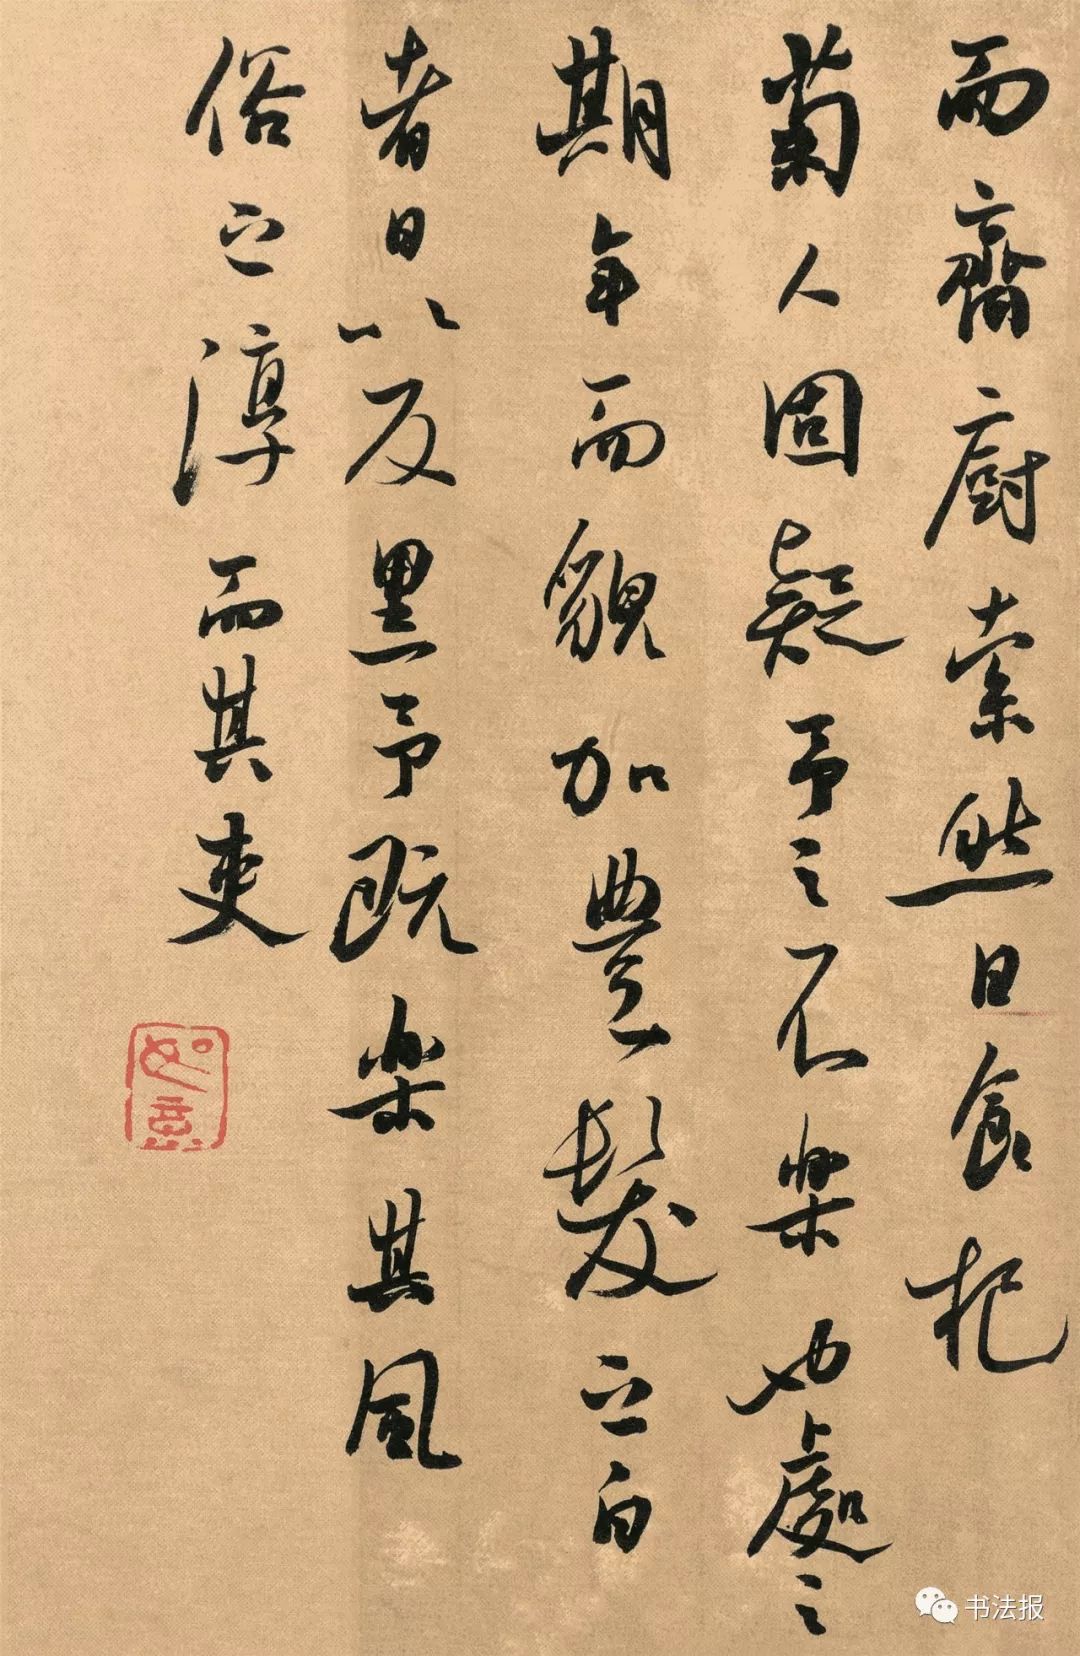 而齋廚索然日食杞
菊人固疑予之不樂也處之
期年而貌加豐髮之白
者日以反黑予既樂其風
俗之淳而其吏
如意
书法报